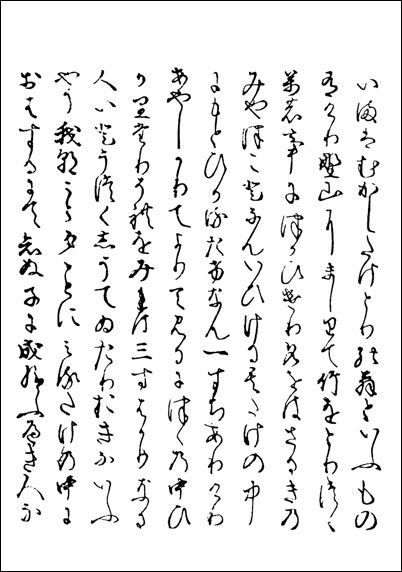 いまはむかしたけとりの翁といふもの
有けり野山にましりて竹をとりつゝ
萬の事につかひけり名をはさるきの
みやつことなんいひける其たけの中
にもとひかるたけなん一すちありけり
あやしかりてよりて見るにつゝの中ひ
かりたりそれをみれは三すはかりなる
人いとうつくしうてゐたりおきないふ
やう我朝ことタことにみるたけの中に
おはするにてしりぬ子に成給ふへき人な